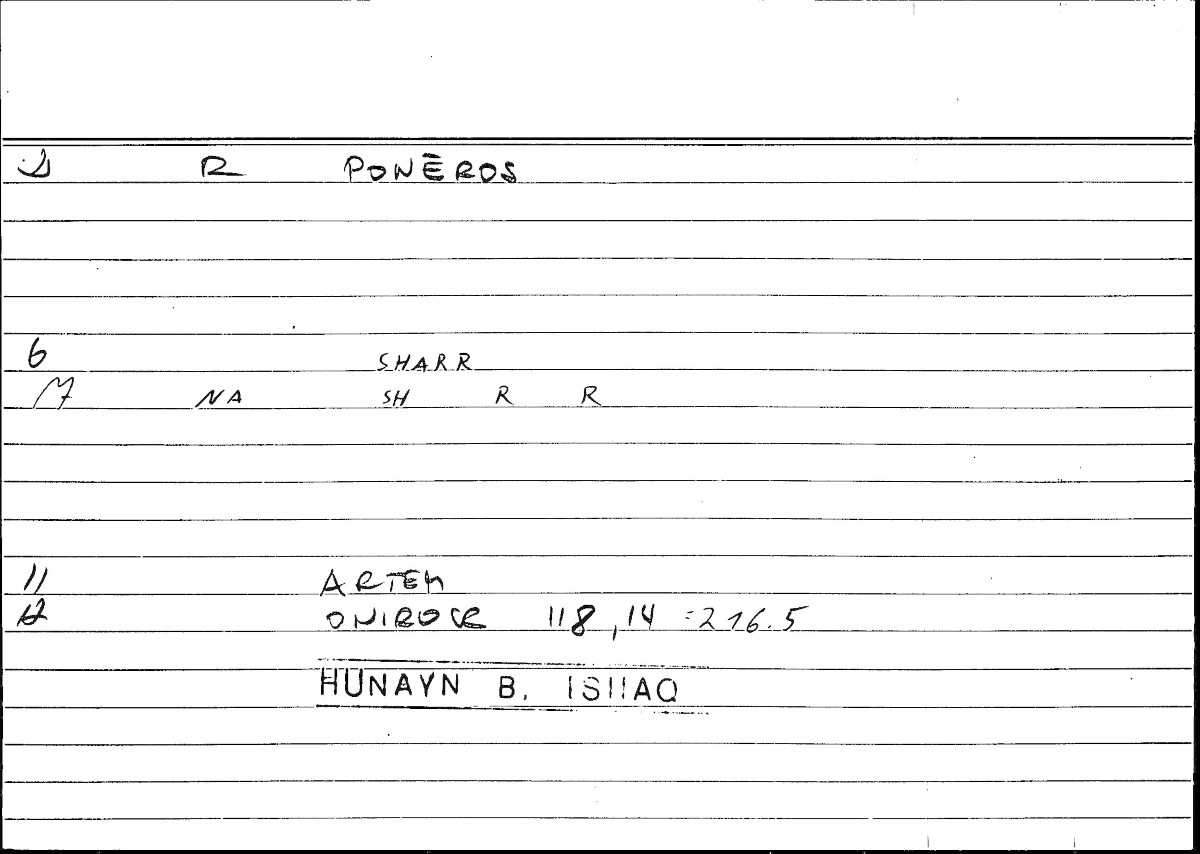 R PONĒROS
6 SHARR
7 NA SH R R
11 ARTEM
12 ONIROCR 118,14 =216.5
HUNAYN B. ISHAQ